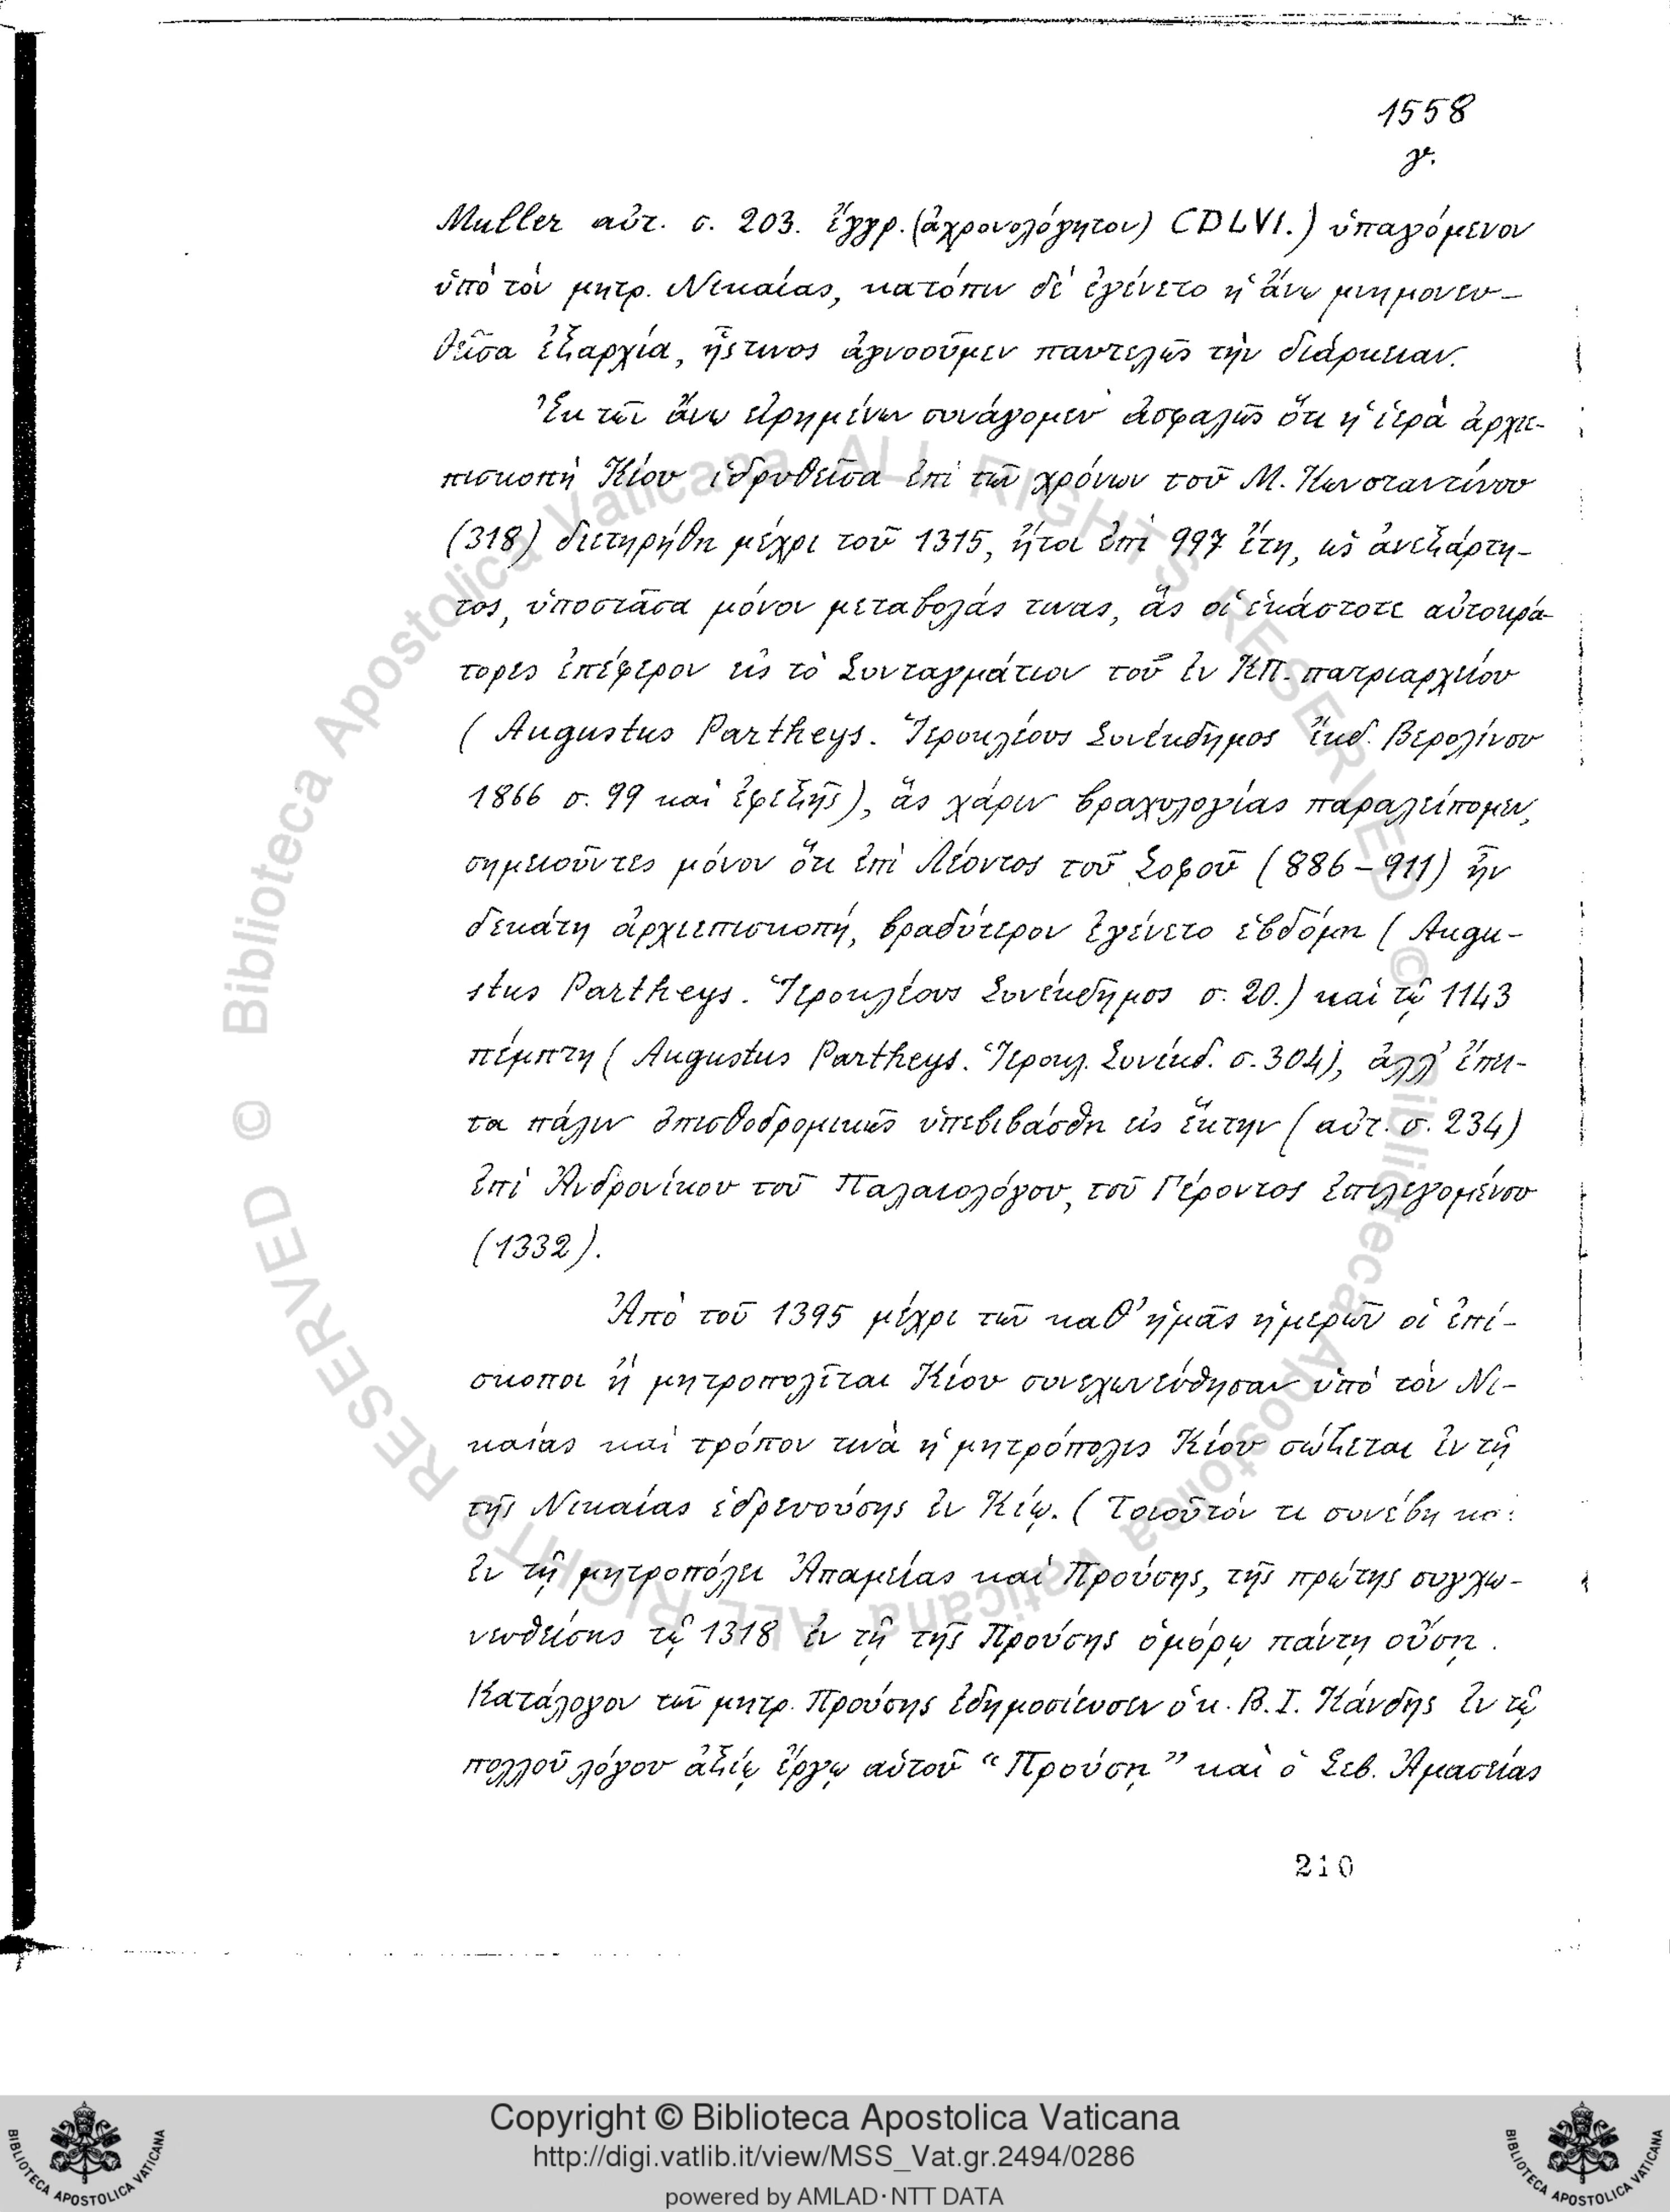 1558
γ.
Muller αὐτ. σ. 203. ἔγγρ. (ἀχρονολόγητον) CDLVI.) ὑπαγόμενον
ὑπὸ τὸν μητρ. Νικαίας, κατόπιν δὲ ἐγένετο ἡ ἄνω μνημονευ-
θεῖσα ἐξαρχία, ἧς τινος ἀγνοοῦμεν παντελῶς τὴν διάρκειαν.
Ἐκ τῶν ἄνω εἰρημένων συνάγομεν ἀσφαλῶς ὅτι ἡ ἱερὰ ἀρχιε-
πισκοπὴ Κίου ἱδρυθεῖσα ἐπὶ τῶν χρόνων τοῦ Μ. Κωνσταντίνου
(318) διετηρήθη μέχρι τοῦ 1315, ἤτοι ἐπὶ 997 ἔτη, ὡς ἀνεξάρτη-
τος, ὑποστᾶσα μόνον μεταβολάς τινας, ἃς οἱ ἑκάστοτε αὐτοκρά-
τορες ἐπέφερον εἰς τὸ Συνταγμάτιον τοῦ ἐν ΚΠ. πατριαρχείου
(Augustus Partheys. Ἱεροκλέους Συνέκδημος ἔκδ. Βερολίνου
1866 σ. 99 καὶ ἐφεξῆς), ἃς χάριν βραχυλογίας παραλείπομεν,
σημειοῦντες μόνον ὅτι ἐπὶ Λέοντος τοῦ Σοφοῦ (886-911) ἦν
δεκάτη ἀρχιεπισκοπή, βραδύτερον ἐγένετο ἑβδόμη (Augu-
stus Partheys. Ἱεροκλέους Συνέκδημος σ. 20.) καὶ τῷ 1143
πέμπτη (Augustus Partheys. Ἱεροκλ. Συνέκδ. σ. 304), ἀλλ' ἔπει-
τα πάλιν ὀπισθοδρομικῶς ὑπεβιβάσθη εἰς ἕκτην (αὐτ. σ. 234)
ἐπὶ Ἀνδρονίκου τοῦ Παλαιολόγου, τοῦ Γέροντος ἐπιλεγομένου
(1332).
Ἀπὸ τοῦ 1395 μέχρι τῶν καθ' ἡμᾶς ἡμερῶν οἱ ἐπί-
σκοποι ἢ μητροπολῖται Κίου συνεχωνεύθησαν ὑπὸ τὸν Νι-
καίας καὶ τρόπον τινὰ ἡ μητρόπολις Κίου σώζεται ἐν τῇ
τῆς Νικαίας ἑδρευούσης ἐν Κίῳ. (Τοιοῦτόν τι συνέβη καὶ
ἐν τῇ μητροπόλει Ἀπαμείας καὶ Προύσης, τῆς πρώτης συγχω-
νευθείσης τῷ 1318 ἐν τῇ τῆς Προύσης ὁμόρῳ πάντῃ οὔσῃ.
Κατάλογον τῶν μητρ. Προύσης ἐδημοσίευσεν ὁ κ. Β. Ι. Κάνδης ἐν τῷ
πολλοῦ λόγου ἀξίῳ ἔργῳ αὐτοῦ “Προύση” καὶ ὁ Σεβ. Ἀμασείας
210
© Biblioteca Apostolica Vaticana ALL RIGHTS RESERVED
© Biblioteca Apostolica Vaticana ALL RIGHTS RESERVED
Copyright © Biblioteca Apostolica Vaticana
http://digi.vatlib.it/view/MSS_Vat.gr.2494/0286
powered by AMLAD·NTT DATA
BIBLIOTECA APOSTOLICA VATICANA
BIBLIOTECA APOSTOLICA VATICANA